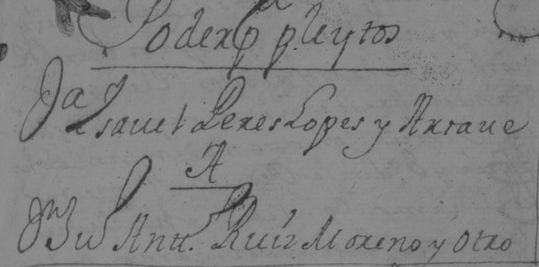 Poder pª pleytos
Dª Ysavel Peres Lopes y Artave
A
Dn Antt. Ruiz Moreno y Otro